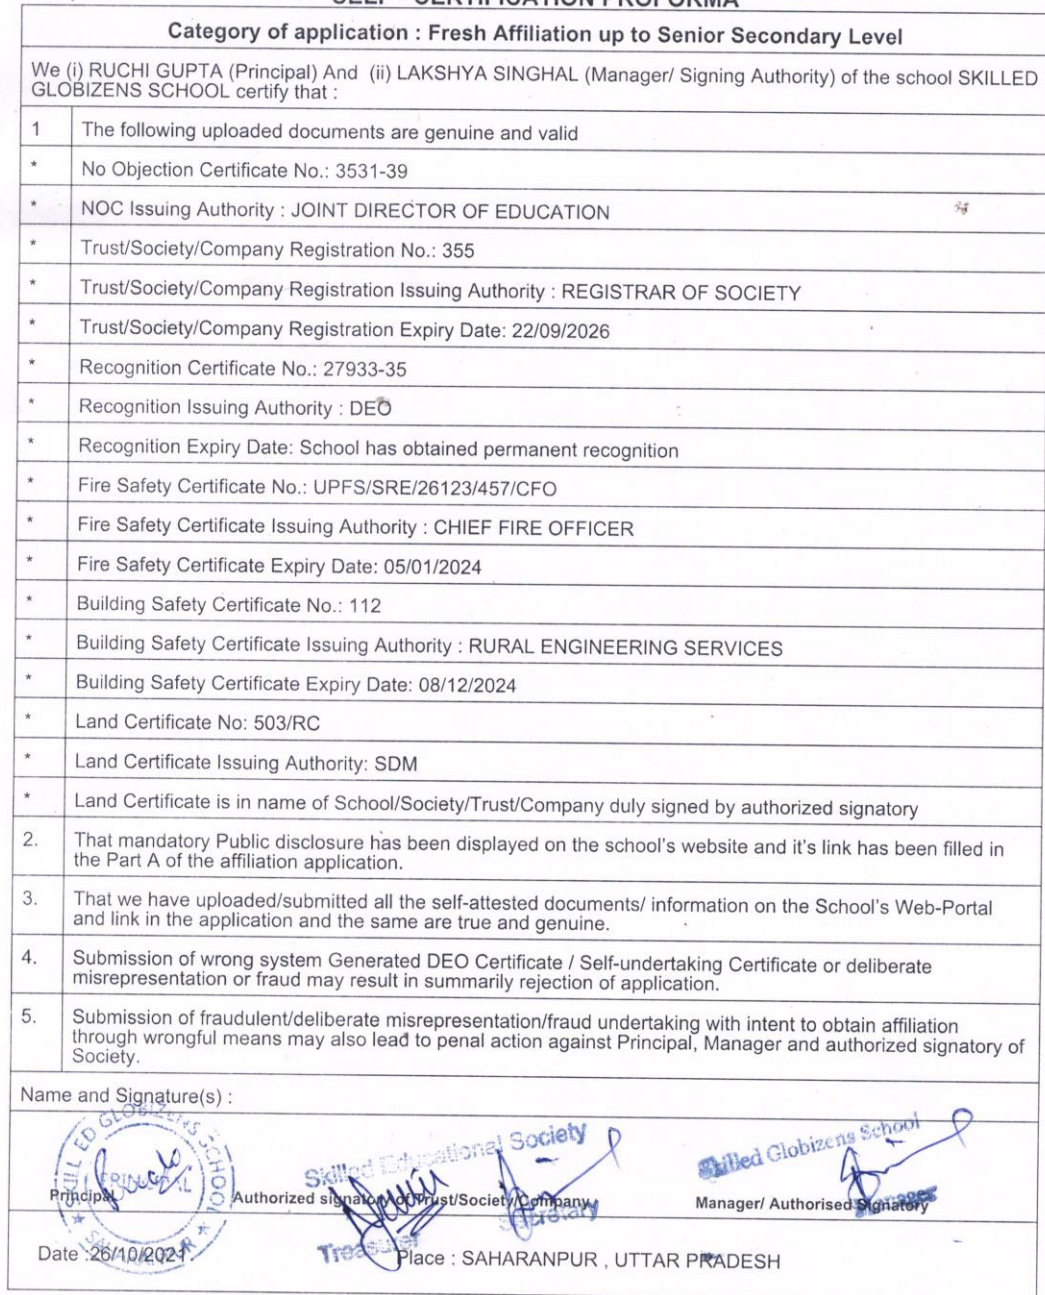 SELF - CERTIFICATION PROFORMA
Category of application : Fresh Affiliation up to Senior Secondary Level
We (i) RUCHI GUPTA (Principal) And (ii) LAKSHYA SINGHAL (Manager/ Signing Authority) of the school SKILLED
GLOBIZENS SCHOOL certify that :
1 The following uploaded documents are genuine and valid
* No Objection Certificate No.: 3531-39
* NOC Issuing Authority : JOINT DIRECTOR OF EDUCATION
* Trust/Society/Company Registration No.: 355
* Trust/Society/Company Registration Issuing Authority : REGISTRAR OF SOCIETY
* Trust/Society/Company Registration Expiry Date: 22/09/2026
* Recognition Certificate No.: 27933-35
* Recognition Issuing Authority : DEO
* Recognition Expiry Date: School has obtained permanent recognition
* Fire Safety Certificate No.: UPFS/SRE/26123/457/CFO
* Fire Safety Certificate Issuing Authority : CHIEF FIRE OFFICER
* Fire Safety Certificate Expiry Date: 05/01/2024
* Building Safety Certificate No.: 112
* Building Safety Certificate Issuing Authority : RURAL ENGINEERING SERVICES
* Building Safety Certificate Expiry Date: 08/12/2024
* Land Certificate No: 503/RC
* Land Certificate Issuing Authority: SDM
* Land Certificate is in name of School/Society/Trust/Company duly signed by authorized signatory
2. That mandatory Public disclosure has been displayed on the school's website and it's link has been filled in
the Part A of the affiliation application.
3. That we have uploaded/submitted all the self-attested documents/ information on the School's Web-Portal
and link in the application and the same are true and genuine.
4. Submission of wrong system Generated DEO Certificate / Self-undertaking Certificate or deliberate
misrepresentation or fraud may result in summarily rejection of application.
5. Submission of fraudulent/deliberate misrepresentation/fraud undertaking with intent to obtain affiliation
through wrongful means may also lead to penal action against Principal, Manager and authorized signatory of
Society.
Name and Signature(s) :
SKILLED GLOBIZENS SCHOOL
PRINCIPAL
SAHARANPUR
Skilled Educational Society
Skilled Globizens School
Principal
Authorized signatory of Trust/Society/Company
Manager/ Authorised Signatory
Treasurer
Secretary
Manager
Date :26/10/2021
Place : SAHARANPUR , UTTAR PRADESH